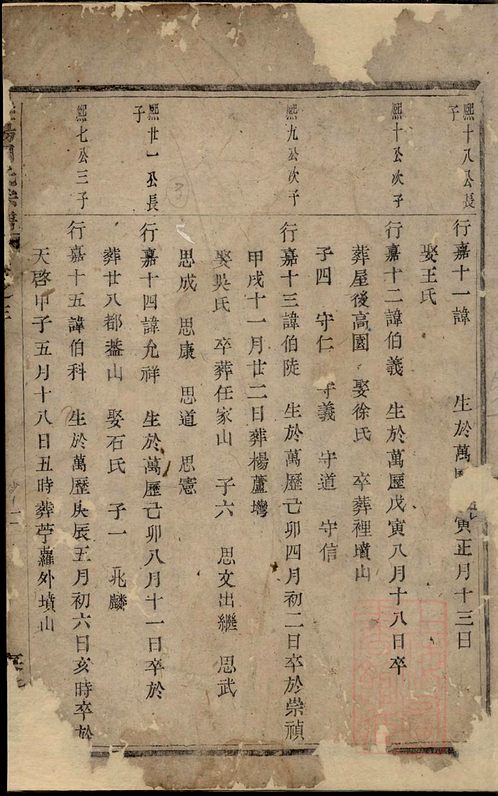 熙十八公長子
行嘉十一諱 生於萬 寅正月十三日
娶王氏
熙十公次子
行嘉十二諱伯義 生於萬歷戊寅八月十八日卒
葬屋後高園 娶徐氏 卒葬裡墳山
子四 守仁 守義 守道 守信
熙九公次子
行嘉十三諱伯陡 生於萬歷己卯四月初二日卒於崇禎
甲戌十一月廿二日葬楊蘆灣
娶吳氏 卒葬任家山 子六 思文出繼 思武
思成 思康 思道 思憲
熙廿一公長子
行嘉十四諱允祥 生於萬歷己卯八月十一日卒於
葬廿八都 山 娶石氏 子一 兆麟
熙七公三子
行嘉十五諱伯科 生於萬歷庚辰五月初六日亥時卒於
天啓甲子五月十八日丑時葬苧蘿外墳山